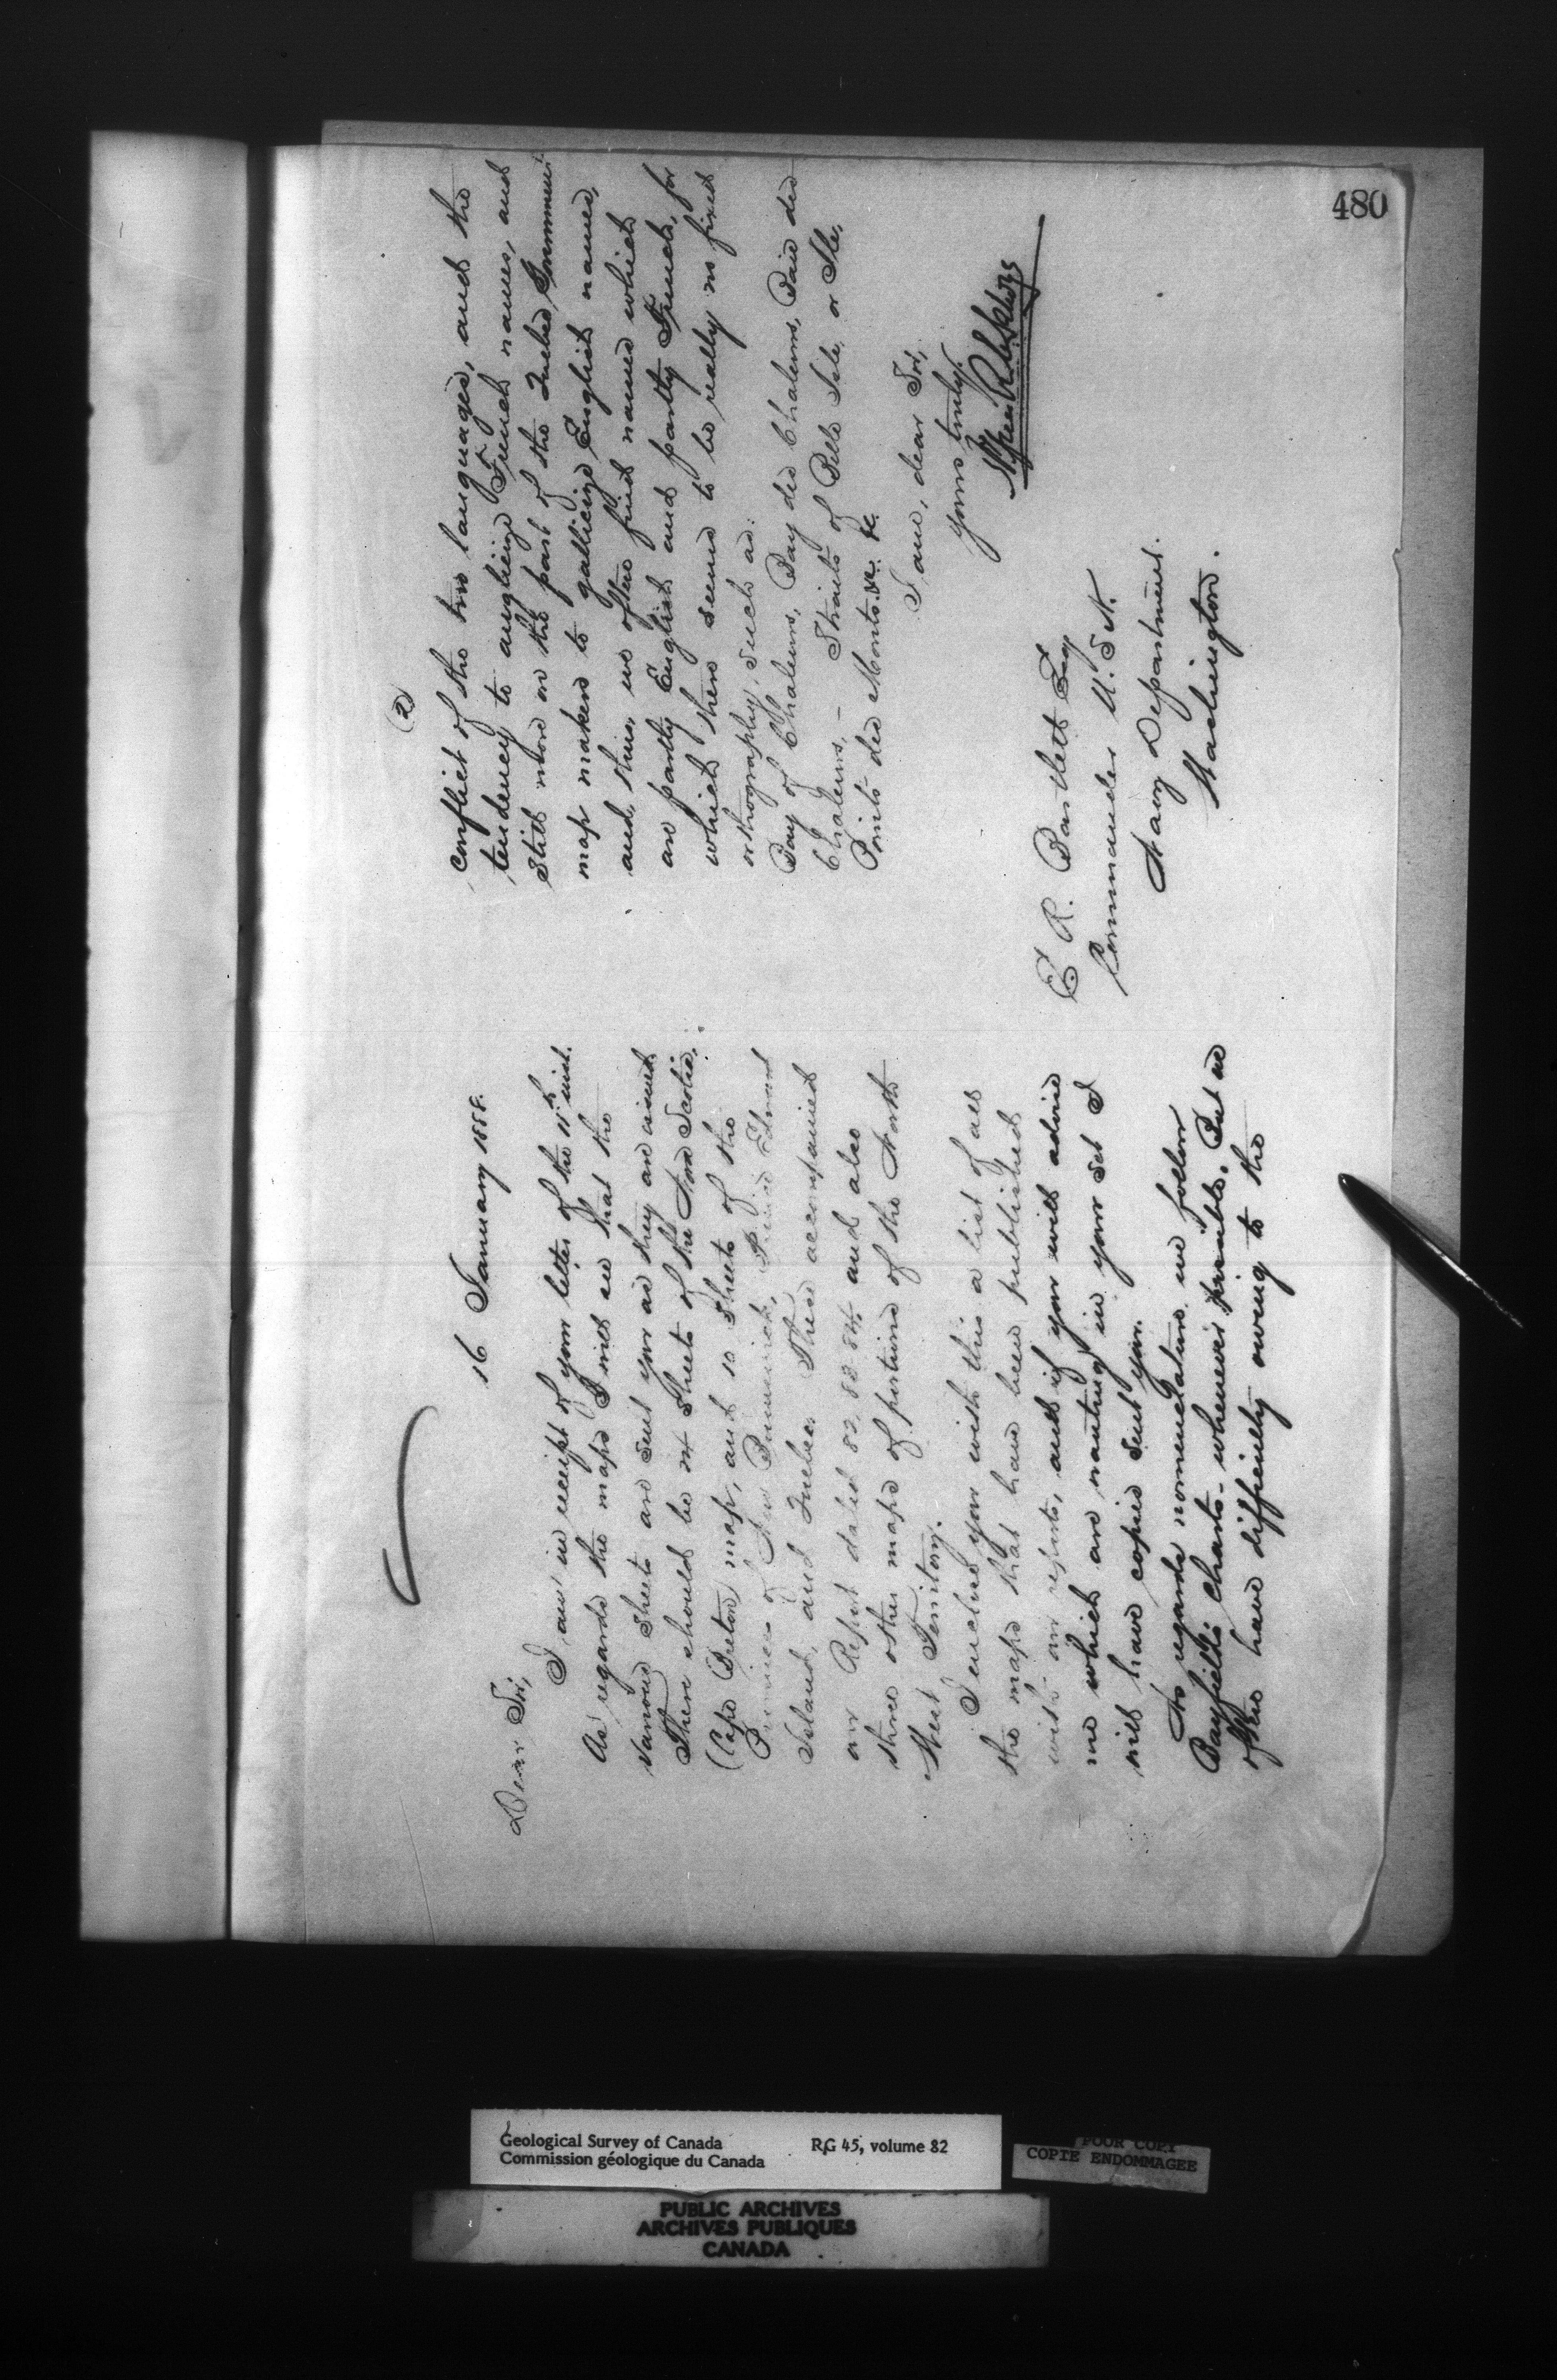 480
16 January 1888.
Dear Sir,
I am in receipt of your letter of the 11th inst.
As regards the maps I will see that the
various sheets are sent you as they are issued
There should be 24 sheets of the Nova Scotia,
(Cape Breton) map, and 10 sheets of the
Provinces of New Brunswick, Prince Edward
Island, and Quebec. These accompanied
our Report dated 82, 83 84 and also
three other maps of portions of the North
West Territory.
I enclose you with this a list of all
the maps that have been published
with our reports, and if you will advise
me which are wanting in your set I
will have copies sent you.
As regards nomenclature we follow
Bayfield's Charts - whenever possible. But we
often have difficulty owing to the
(2)
conflict of the two languages, and the
tendency to anglicize French names, and
still more on the part of the Quebec Government
map makers to gallicize English names,
and, thus, we often find names which
are partly English and partly French, for
which there seems to be really no fixed
orthography, such as:
Bay of Chaleurs, Bay des Chaleurs, Baie des
Chaleurs, - Straits of Belle Isle, or Ile,
Point des Monts. &c. &c.
I am, dear Sir,
yours truly.
C R. Bartlett Esq
Commander U.S.N.
Navy Department.
Washington.
Geological Survey of Canada RG 45, volume 82
Commission géologique du Canada
POOR COPY
COPIE ENDOMMAGEE
PUBLIC ARCHIVES
ARCHIVES PUBLIQUES
CANADA